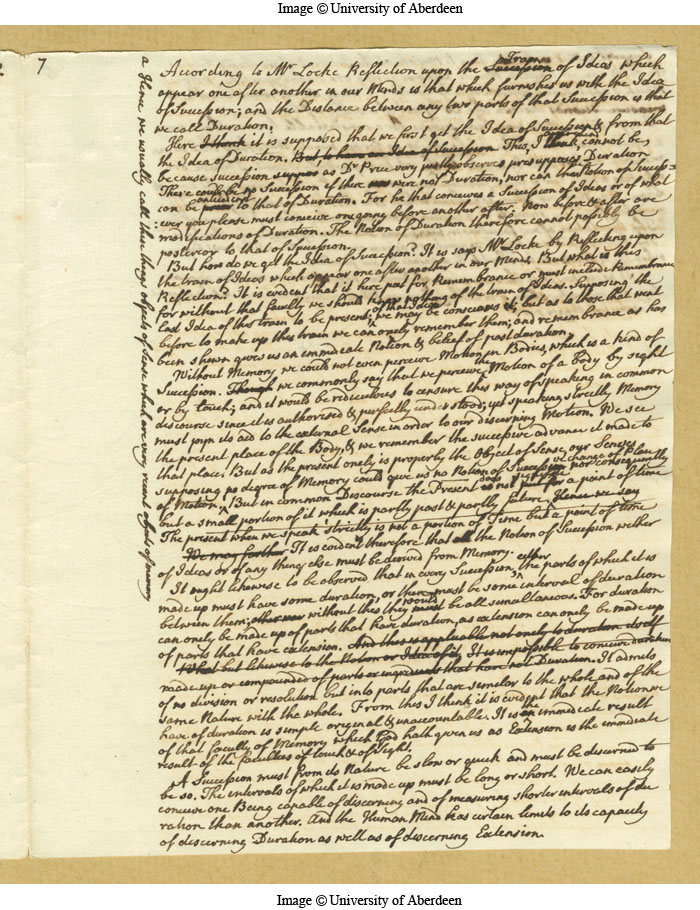 Image © University of Aberdeen
7
According to Mr Locke Reflection upon the Succession Train of Ideas which
appear one after another in our Minds is that which furnishes us with the Idea
of Succession; and the Distance between any two parts of that Succession is that
we call Duration.
Here I think it is supposed that we first get the Idea of Succession & from that
the Idea of Duration. But, to have an Idea of Succession This, I think, cannot be
because Succession as Dr Price very justly observes presupposes Duration
There could be no Succession if there were not Duration, nor can the Notion of Success=
can be antecedent to that of Duration. For he that conceives a Succession of Ideas or of what
ever you please must conceive one going before another after. Now before & after are
modifications of Duration. The Notion of Duration therefore cannot possibly be
posterior to that of Succession.
But how do we get the Idea of Succession? It is says Mr Locke by Reflecting upon
the train of Ideas which appear one after another in our Minds. But what is this
Reflection? It is evident that it is here put for Remembrance or must include Remembrance
for without that faculty we should know nothing of the train of Ideas. Supposing the
last Idea of this train to be present, we may be conscious of that Idea; but as to those that went
before to make up this train we can onely remember them; and remembrance as has
been shewn gives us an immediate Notion & belief of past duration.
Without Memory we could not even perceive Motion in Bodies, which is a kind of
Succession. Though we commonly say that we perceive the Motion of a Body by sight
or by touch; and it would be ridiculous to censure this way of speaking in common
discourse since it is authorised & perfectly understood; yet speaking strictly Memory
must joyn its aid to the external Sense in order to our discerning Motion. We see
the present place of the Body, & we remember the successive advance it made to
that place. But as the present onely is properly the Object of Sense, our Senses
supposing no degree of Memory could give us no Notion of Succession nor consequently
of Motion or change of Place. But in common Discourse the Present does not signify is not put for a point of time
but a small portion of it which is partly past & partly future. Hence we say
The present when we speak strictly is not a portion of Time but a point of time
We may further It is evident therefore that all the Notion of Succession wether
of Ideas or of any thing else must be derived from Memory.
It ought likewise to be observed that in every Succession, either the parts of which it is
made up must have some duration, or there must be some interval of duration
between them; other ways without this they would must be all simultaneous. For duration
can onely be made up of parts that have duration, as extension can onely be made up
of parts that have extension. And this is applicable not onely to duration itself
but likewise to the Notion or Idea of it, It is impossible to conceive duration
made up or compounded of parts or ingredients that have not Duration. It admits
of no division or resolution but into parts that are similar to the whole and of the
same Nature with the whole. From this I think it is evident that the Notion we
have of duration is simple original & unaccountable. It is the immediate result
of that faculty of Memory which God hath given us as Extension is the immediate
result of the faculties of touch & of Sight.
A Succession must from its Nature be slow or quick and must be discerned to
be so. The intervals of which it is made up must be long or short. We can easily
conceive one Being capable of discerning and of measuring shorter intervals of du
ration than another. And the Human Mind has certain limits to its capacity
of discerning Duration as well as of discerning Extension.
a Hence we usually call those things objects of Sense which are very recent objects of memory
Image © University of Aberdeen